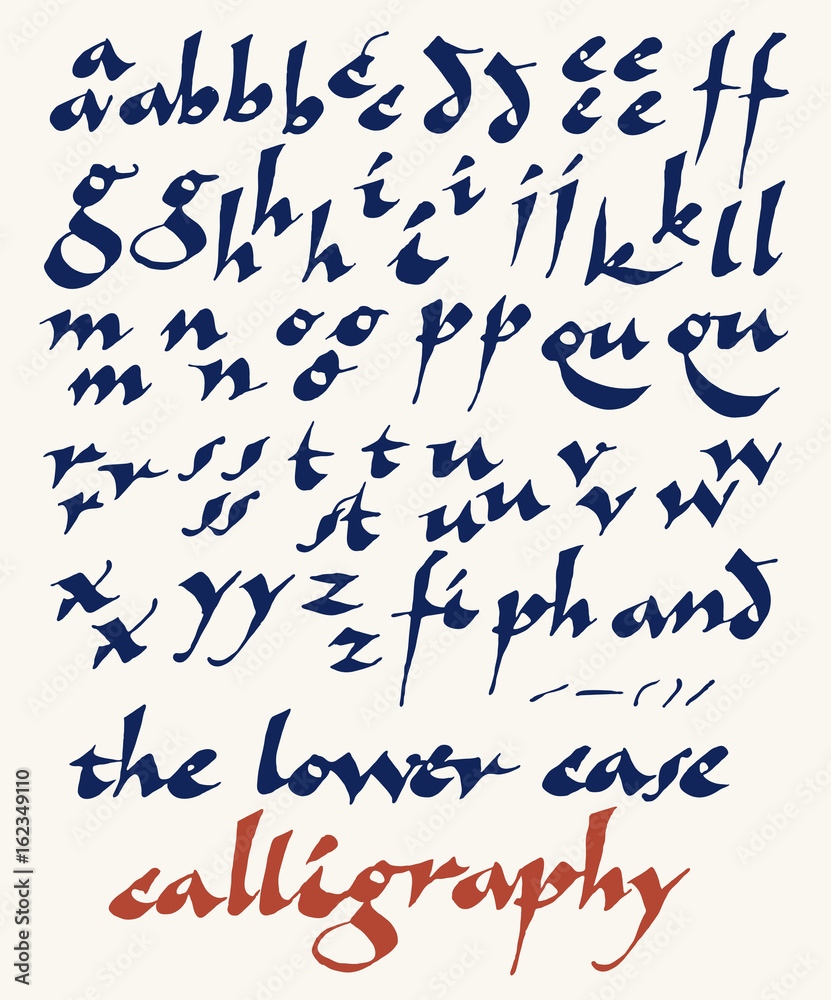 a a b b b c c d d e e f f
a e e
g g h h h i i i j j k k l l
m n o o p p qu qu
m n o
r r s s t t u v w
r s s st u u v w
x y y z fi ph and
x z
the lower case
calligraphy
Adobe Stock | #162349110